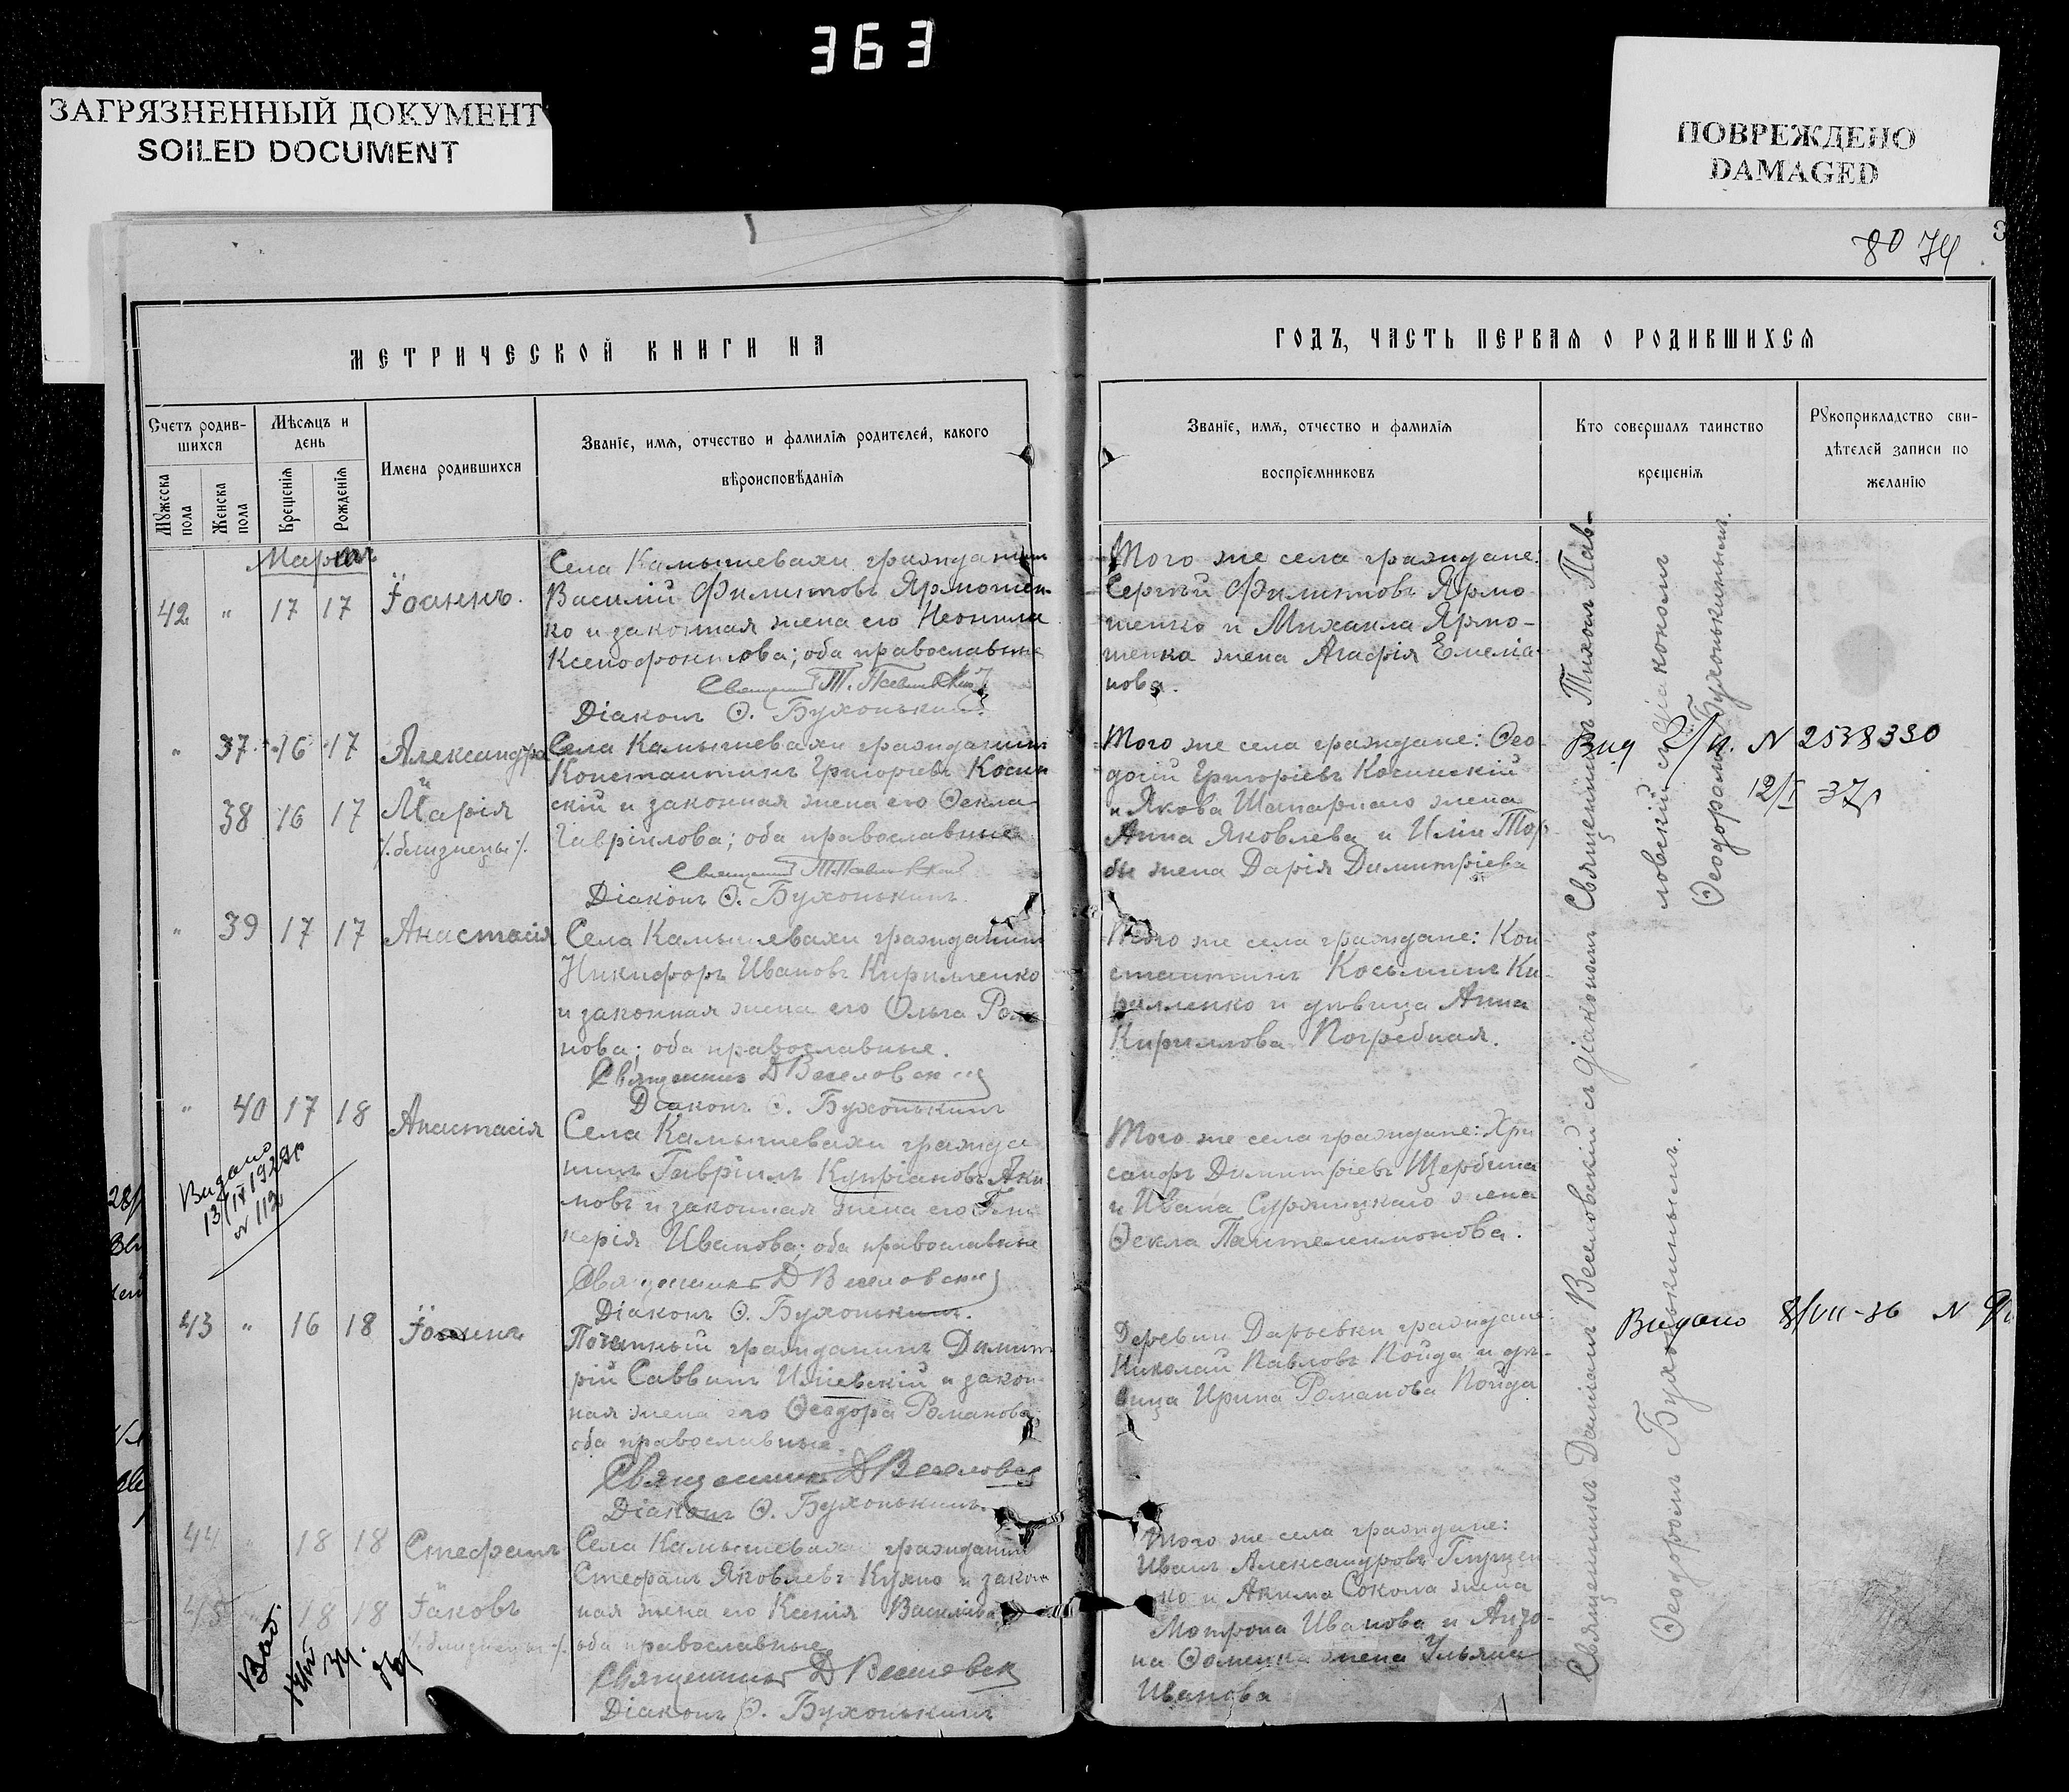 363
ЗАГРЯЗНЕННЫЙ ДОКУМЕНТ
SOILED DOCUMENT
ПОВРЕЖДЕНО
DAMAGED
80 74
МЕТРИЧЕСКОЙ КНИГИ НА
Счетъ родив-
шихся
Мѣсяцъ и
день
Имена родившихся
Званіе, имя, отчество и фамилія родителей, какого
вѣроисповѣданія
Мужеска
пола
Женска
пола
Крещенія
Рожденія
Мартъ
42 " 17 17 Іоаннъ.
Села Камышевахи гражданинъ
Василій Филиповъ Ярмошен-
ко и законная жена его Неонила
Ксенофонтова; оба православные
Священникъ Т. Павловскій
Діаконъ Ѳ. Бухонькинъ.
" 37 16 17 Александра
и
38 16 17 Марія
/.близнецы/.
Села Камышевахи гражданинъ
Константинъ Григорьевъ Косин
скій и законная жена его Ѳекла
Гавріилова; оба православные
Священникъ Т. Павловскій
Діаконъ Ѳ. Бухонькинъ.
" 39 17 17 Анастасія
Села Камышевахи гражданинъ
Никифоръ Ивановъ Кирилленко
и законная жена его Ольга Рома
нова; оба православные.
Священникъ Д Веселовскій
Діаконъ Ѳ. Бухонькинъ
" 40 17 18 Анастасія
Видано
№ 112
Села Камышевахи гражда
нинъ Гавріилъ Купріановъ Аки
мовъ и законная жена его Гли
керія Иванова; оба православные
Священникъ Д Веселовскій
Діаконъ Ѳ. Бухонькинъ.
43 " 16 18 Іоаннъ
Почетный гражданинъ Димит
рій Саввинъ Иліевскій и закон-
ная жена его Ѳеодора Романова
оба православные.
Священникъ Д Веселовск
Діаконъ Ѳ. Бухонькинъ.
44 18 18 Стефанъ
45 " 18 18 Іаковъ
/.близнецы/.
Села Камышевахи гражданинъ
Стефанъ Яковлевъ Кухно и закон
ная жена его Ксенія Василіева
оба православные
Священникъ Д Веселовск
Діаконъ Ѳ. Бухонькинъ
ГОДЪ, ЧАСТЬ ПЕРВАЯ О РОДИВШИХСЯ
Званіе, имя, отчество и фамилія
воспріемниковъ
Кто совершалъ таинство
крещенія
Рукоприкладство сви-
дѣтелей записи по
желанію
Того же села граждане:
Сергѣй Филиповъ Ярмо
шенко и Михаила Ярмо-
шенка жена Агафія Емелiа
нова.
Того же села граждане: Ѳео
досій Григоріевъ Косинскій
и Якова Шапарнаго жена
Анна Яковлева и Иліи Тор
бы жена Дарія Димитріева
Того же села граждане: Кон-
стантинъ Косьминъ Ки-
рилленко и дѣвица Анна
Кириллова Погребная.
Того же села граждане: Хри
санфъ Димитріевъ Щербина
и Ивана жена
Ѳекла Пантелеимонова.
Деревни Дарьевки граждане:
Николай Павловъ Пойда и дѣ-
вица Ирина Романова Пойда
Того же села граждане:
Иванъ Александровъ Глущен
ко и Акима Сокола жена
Матрона Иванова и
на жена Ульяна
Иванова
Священникъ Тихонъ Пав-
ловскій съ діакономъ
Ѳеодоромъ Бухонькинымъ.
Вид № 2538330
12/I 37
Священникъ Даніилъ Веселовскій съ діакономъ
Ѳеодоромъ Бухонькинымъ.
Видано 8/VII-36 N